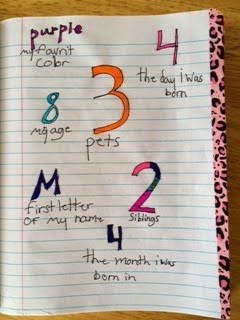 purple
my favrit
color
4
the day i was
born
3
pets
8
my age
M
first letter
of my name
2
siblings
4
the month i was
born in